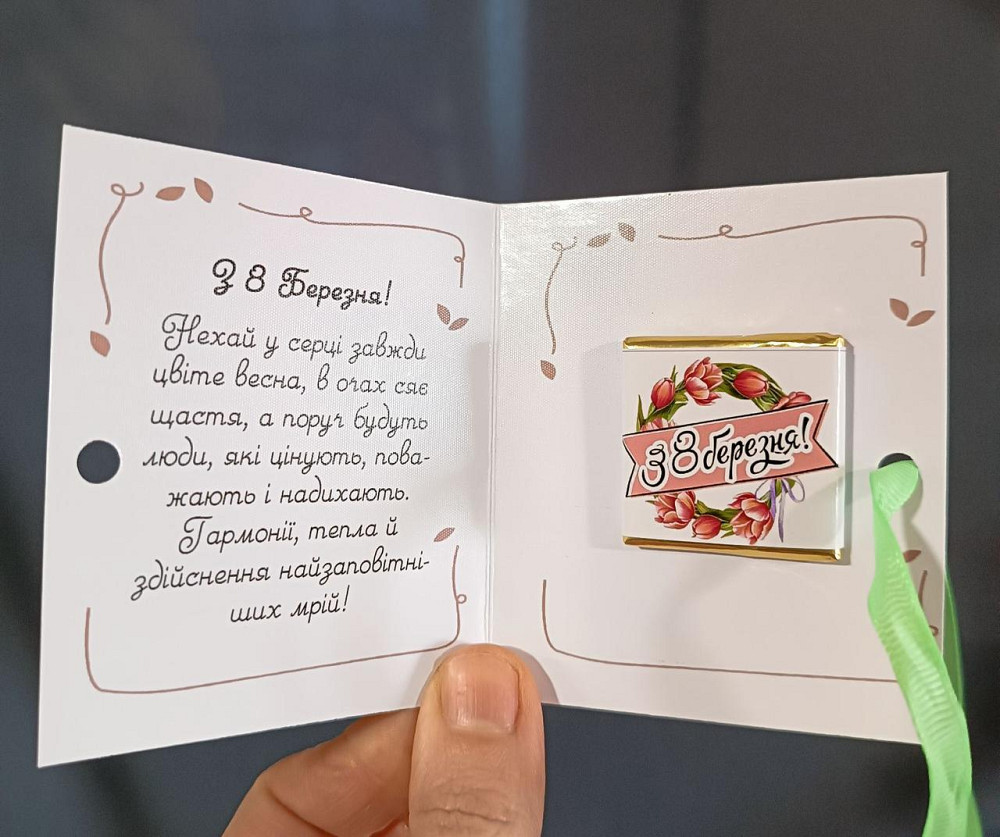 З 8 Березня!
Нехай у серці завжди
цвіте весна, в очах сяє
щастя, а поруч будуть
люди, які цінують, пова-
жають і надихають.
Гармонії, тепла й
здійснення найзаповітні-
ших мрій!
З 8 березня!